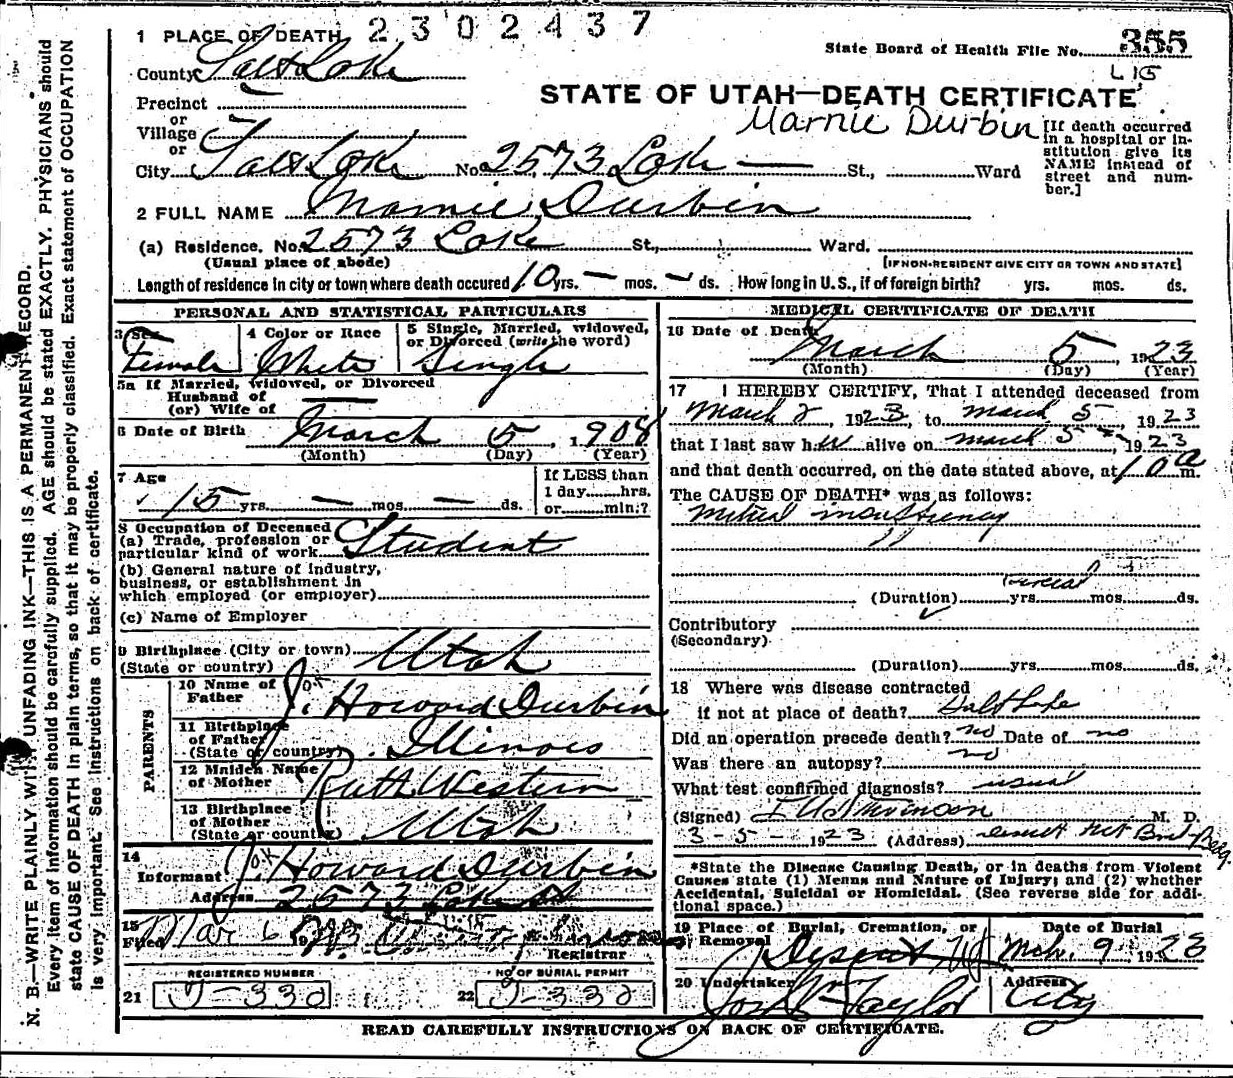 2302437
1 PLACE OF DEATH
State Board of Health File No. 355
County Salt Lake
L 1G
STATE OF UTAH—DEATH CERTIFICATE
Precinct
or
Village
or
Marnie Durbin
[If death occurred in a hospital or institution give its NAME instead of street and number.]
City Salt Lake No. 2573 Lake — St., Ward
2 FULL NAME Mamie Durbin
(a) Residence. No. 2573 Lake St., Ward.
(Usual place of abode)
[IF NON-RESIDENT GIVE CITY OR TOWN AND STATE]
Length of residence in city or town where death occured 10 yrs. — mos. — ds. How long in U.S., if of foreign birth? yrs. mos. ds.
PERSONAL AND STATISTICAL PARTICULARS
3 Sex Female
4 Color or Race White
5 Single, Married, widowed, or Divorced (write the word) Single
5a If Married, widowed, or Divorced
Husband of
(or) Wife of —
6 Date of Birth March 5, 1908
(Month) (Day) (Year)
7 Age 15 yrs. — mos. — ds.
If LESS than
1 day hrs.
or min.?
8 Occupation of Deceased
(a) Trade, profession or
particular kind of work Student
(b) General nature of industry,
business, or establishment in
which employed (or employer)
(c) Name of Employer
9 Birthplace (City or town)
(State or country) Utah
PARENTS
10 Name of Father J. Howard Durbin
11 Birthplace of Father (State or country) Illinois
12 Maiden Name of Mother Ruth Western
13 Birthplace of Mother (State or country) Utah
14
Informant J. Howard Durbin
Address 2573 Lake St
15
Filed Mar 6 19
Registrar
REGISTERED NUMBER
NO OF BURIAL PERMIT
21 T-332
22 T-332
MEDICAL CERTIFICATE OF DEATH
16 Date of Death March 5, 1923
(Month) (Day) (Year)
17 I HEREBY CERTIFY, That I attended deceased from
March 2 1923, to March 5, 1923
that I last saw her alive on March 5, 1923
and that death occurred, on the date stated above, at 10 a m.
The CAUSE OF DEATH* was as follows:
Mitral insufficiency
(Duration) yrs. mos. ds.
Contributory
(Secondary)
(Duration) yrs. mos. ds.
18 Where was disease contracted
if not at place of death? Salt Lake
Did an operation precede death? no Date of no
Was there an autopsy? no
What test confirmed diagnosis? usual
(Signed) M. D.
3-5-1923 (Address)
*State the Disease Causing Death, or in deaths from Violent
Causes state (1) Means and Nature of Injury; and (2) whether
Accidental, Suicidal or Homicidal. (See reverse side for additional space.)
19 Place of Burial, Cremation, or Removal
Date of Burial
Mch. 9 1923
20 Undertaker Jos. Wm Taylor
Address City
READ CAREFULLY INSTRUCTIONS ON BACK OF CERTIFICATE.
N. B.—WRITE PLAINLY WITH UNFADING INK—THIS IS A PERMANENT RECORD.
Every item of information should be carefully supplied. AGE should be stated EXACTLY. PHYSICIANS should
state CAUSE OF DEATH in plain terms, so that it may be properly classified. Exact statement of OCCUPATION
is very important. See instructions on back of certificate.